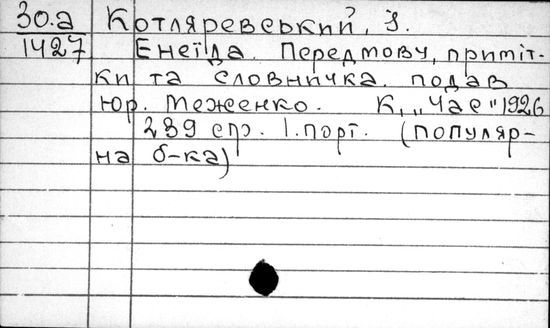 30.а Котляревський, І.
1427 Енеїда. Передмову, приміт-
ки та словничка подав
Юр. Меженко. К., "Час" 1926
239 стр. 1. порт. (популяр-
на б-ка)